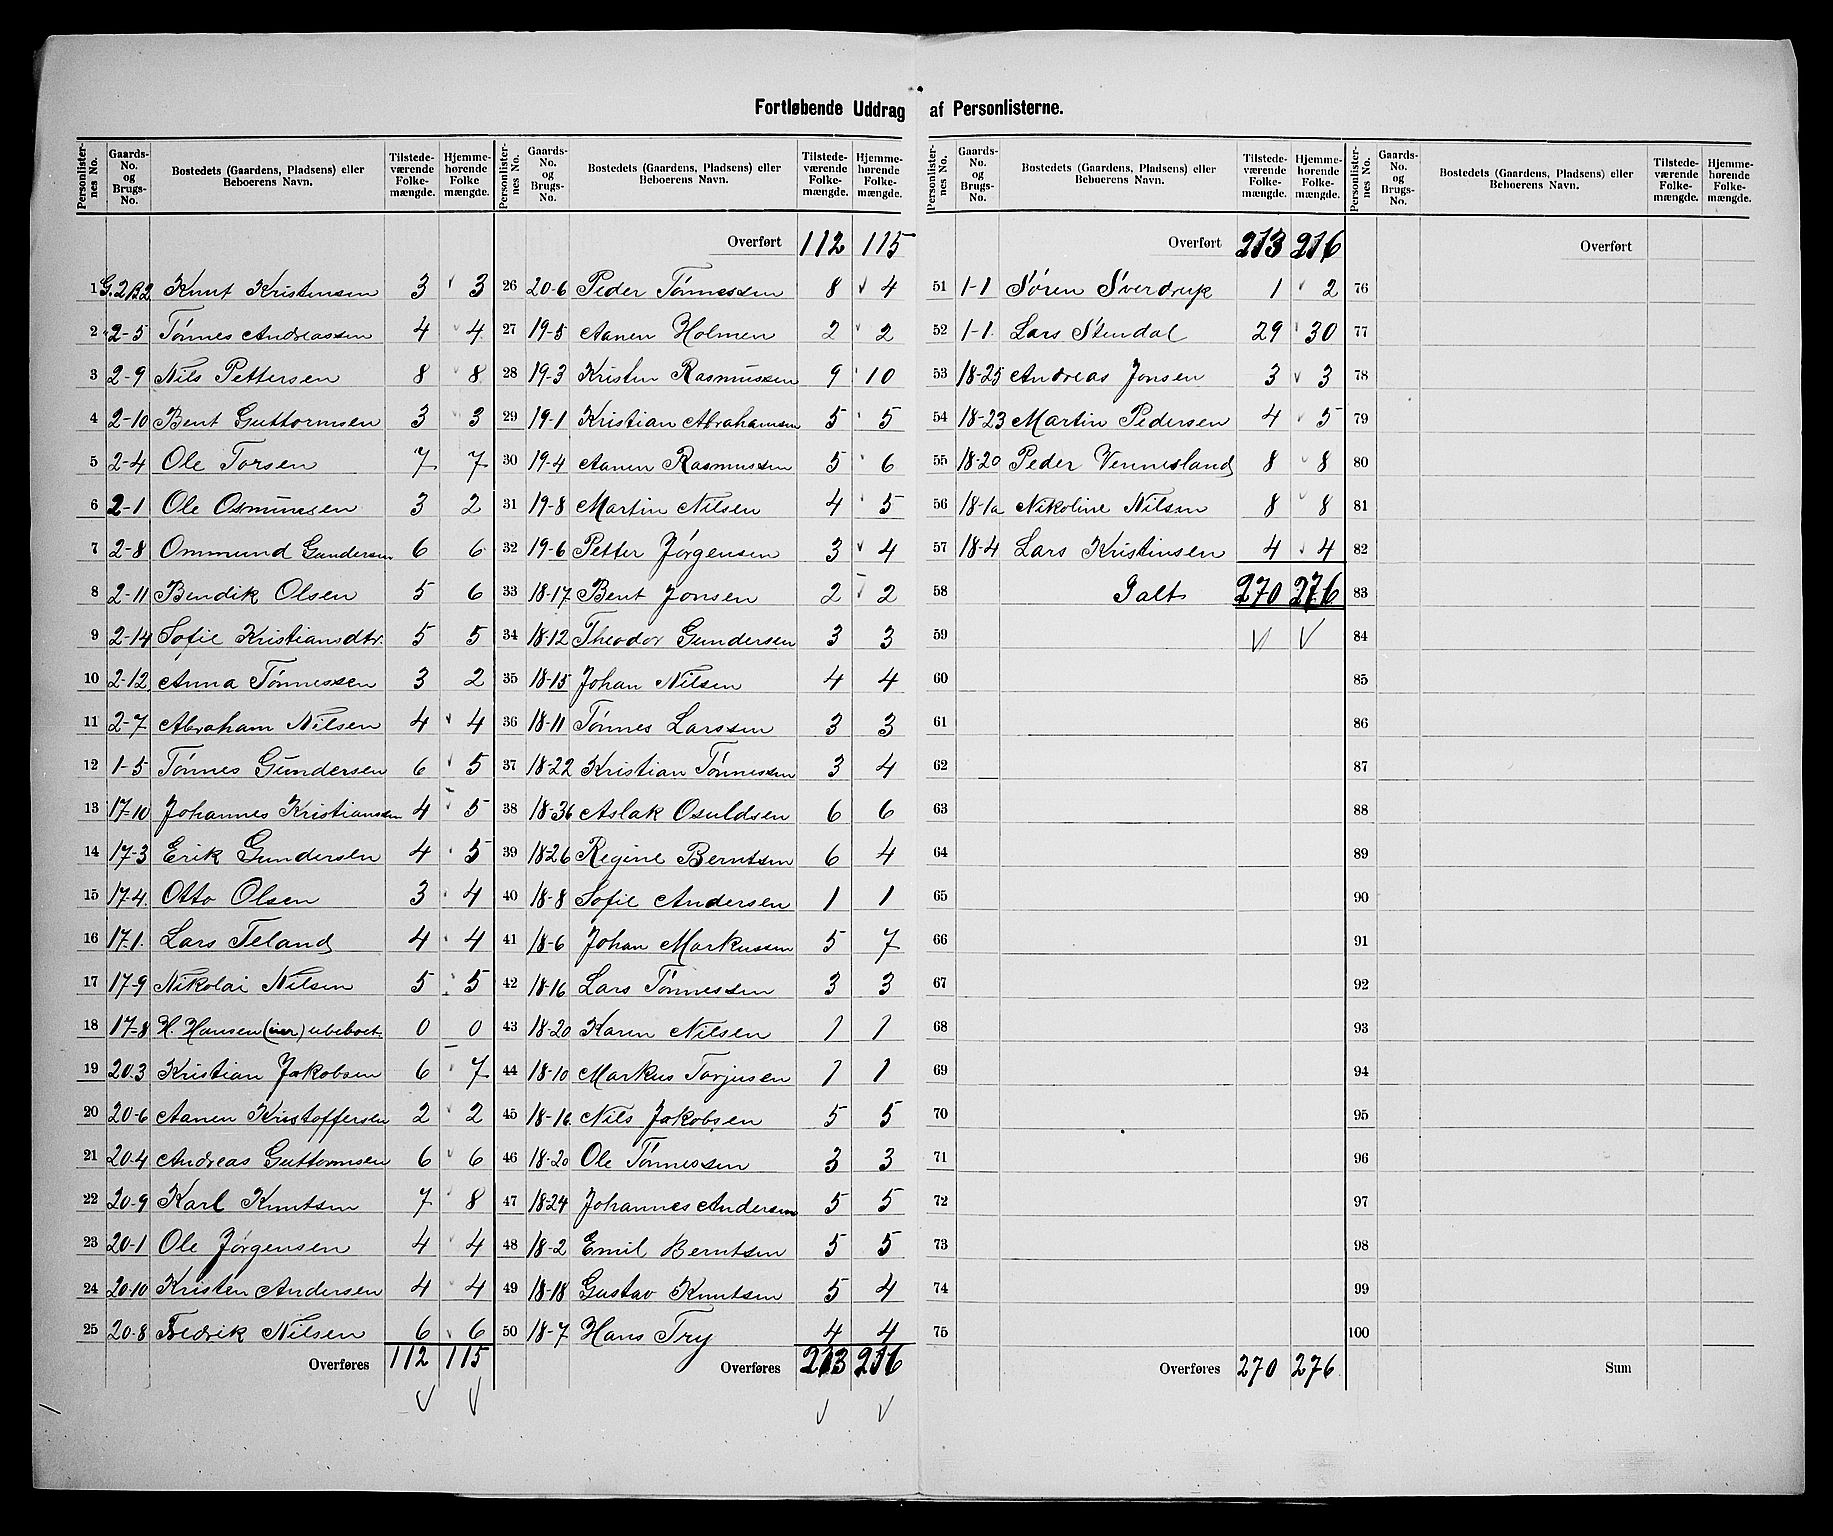 Fortløbende Uddrag af Personlisterne.
Personlisternes No. Gaards-No. og Brugs-No. Bostedets (Gaardens, Pladsens) eller Beboerens Navn. Tilstedeværende Folkemængde. Hjemmehørende Folkemængde.
1 G.2 B2 Knut Kristensen 3 3
2 2-5 Tønnes Andreassen 4 4
3 2-9 Nils Pettersen 8 8
4 2-10 Bent Guttormsen 3 3
5 2-4 Ole Torsen 7 7
6 2-1 Ole Osmunsen 3 2
7 2-8 Ommund Gundersen 6 6
8 2-11 Bendik Olsen 5 6
9 2-14 Sofie Kristiansdtr. 5 5
10 2-12 Anna Tønnessen 3 2
11 2-7 Abraham Nilsen 4 4
12 1-5 Tønnes Gundersen 6 5
13 17-10 Johannes Kristiansen 4 5
14 17-3 Erik Gundersen 4 5
15 17-4. Otto Olsen 3 4
16 17-1. Lars Teland 4 4
17 17-9 Nikolai Nilsen 5 5
18 17-8 H. Hansen ubeboet 0 0
19 20-3 Kristian Jakobsen 6 7
20 20-6 Aanen Kristoffersen 2 2
21 20-4 Andreas Guttormsen 6 6
22 20-9 Karl Knutsen 7 8
23 20-1 Ole Jørgensen 4 4
24 20-10 Kristen Andersen 4 4
25 20-8 Fredrik Nilsen 6 6
Overføres 112 115
Personlisternes No. Gaards-No. og Brugs-No. Bostedets (Gaardens, Pladsens) eller Beboerens Navn. Tilstedeværende Folkemængde. Hjemmehørende Folkemængde.
Overført 112 115
26 20-6 Peder Tønnessen 8 4
27 19-5 Aanen Holmen 2 2
28 19-3 Kristen Rasmussen 9 10
29 19-1 Kristian Abrahamsen 5 5
30 19-4 Aanen Rasmussen 5 6
31 19-8 Martin Nilsen 4 5
32 19-6 Petter Jørgensen 3 4
33 18-17 Bent Jonsen 2 2
34 18-12 Theodor Gundersen 3 3
35 18-15 Johan Nilsen 4 4
36 18-11 Tønnes Larssen 3 3
37 18-22 Kristian Tønnessen 3 4
38 18-36 Aslak Osuldsen 6 6
39 18-26 Regine Berntsen 6 4
40 18-8 Sofie Andersen 1 1
41 18-6 Johan Markussen 5 7
42 18-16 Lars Tønnessen 3 3
43 18-20 Karen Nilsen 1 1
44 18-10 Markus Torjusen 1 1
45 18-16. Nils Jakobsen 5 5
46 18-20 Ole Tønnessen 3 3
47 18-24 Johannes Andersen 5 5
48 18-2 Emil Berntsen 5 5
49 18-18 Gustav Knutsen 5 4
50 18-7 Hans Try 4 4
Overføres 213 216
Personlisternes No. Gaards-No. og Brugs-No. Bostedets (Gaardens, Pladsens) eller Beboerens Navn. Tilstedeværende Folkemængde. Hjemmehørende Folkemængde.
Overført 213 216
51 1-1 Søren Sverdrup 1 2
52 1-1. Lars Stendal 29 30
53 18-25 Andreas Jonsen 3 3
54 18-23 Martin Pedersen 4 5
55 18-20 Peder Vennesland 8 8
56 18-1a Nikoline Nilsen 8 8
57 18-4 Lars Kristinsen 4 4
58 Ialt 270 276
59
60
61
62
63
64
65
66
67
68
69
70
71
72
73
74
75
Overføres 270 276
Personlisternes No. Gaards-No. og Brugs-No. Bostedets (Gaardens, Pladsens) eller Beboerens Navn. Tilstedeværende Folkemængde. Hjemmehørende Folkemængde.
Overført
76
77
78
79
80
81
82
83
84
85
86
87
88
89
90
91
92
93
94
95
96
97
98
99
100
Sum